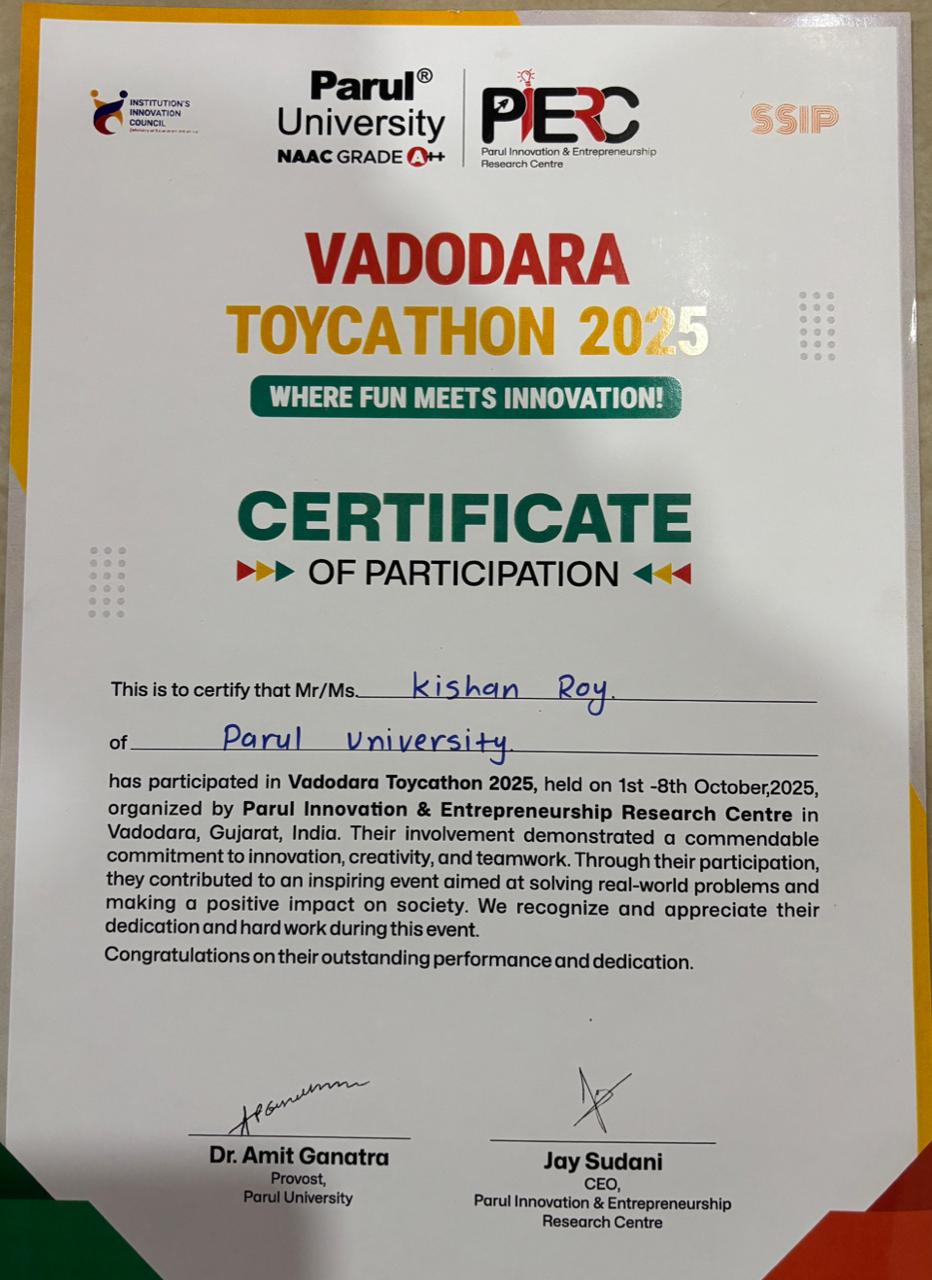 INSTITUTION'S
INNOVATION
COUNCIL
Parul®
University
NAAC GRADE A++
PIERC
Parul Innovation & Entrepreneurship
Research Centre
SSIP
VADODARA
TOYCATHON 2025
WHERE FUN MEETS INNOVATION!
CERTIFICATE
OF PARTICIPATION
This is to certify that Mr/Ms. Kishan Roy.
of Parul University.
has participated in Vadodara Toycathon 2025, held on 1st -8th October,2025,
organized by Parul Innovation & Entrepreneurship Research Centre in
Vadodara, Gujarat, India. Their involvement demonstrated a commendable
commitment to innovation, creativity, and teamwork. Through their participation,
they contributed to an inspiring event aimed at solving real-world problems and
making a positive impact on society. We recognize and appreciate their
dedication and hard work during this event.
Congratulations on their outstanding performance and dedication.
Dr. Amit Ganatra
Provost,
Parul University
Jay Sudani
CEO,
Parul Innovation & Entrepreneurship
Research Centre